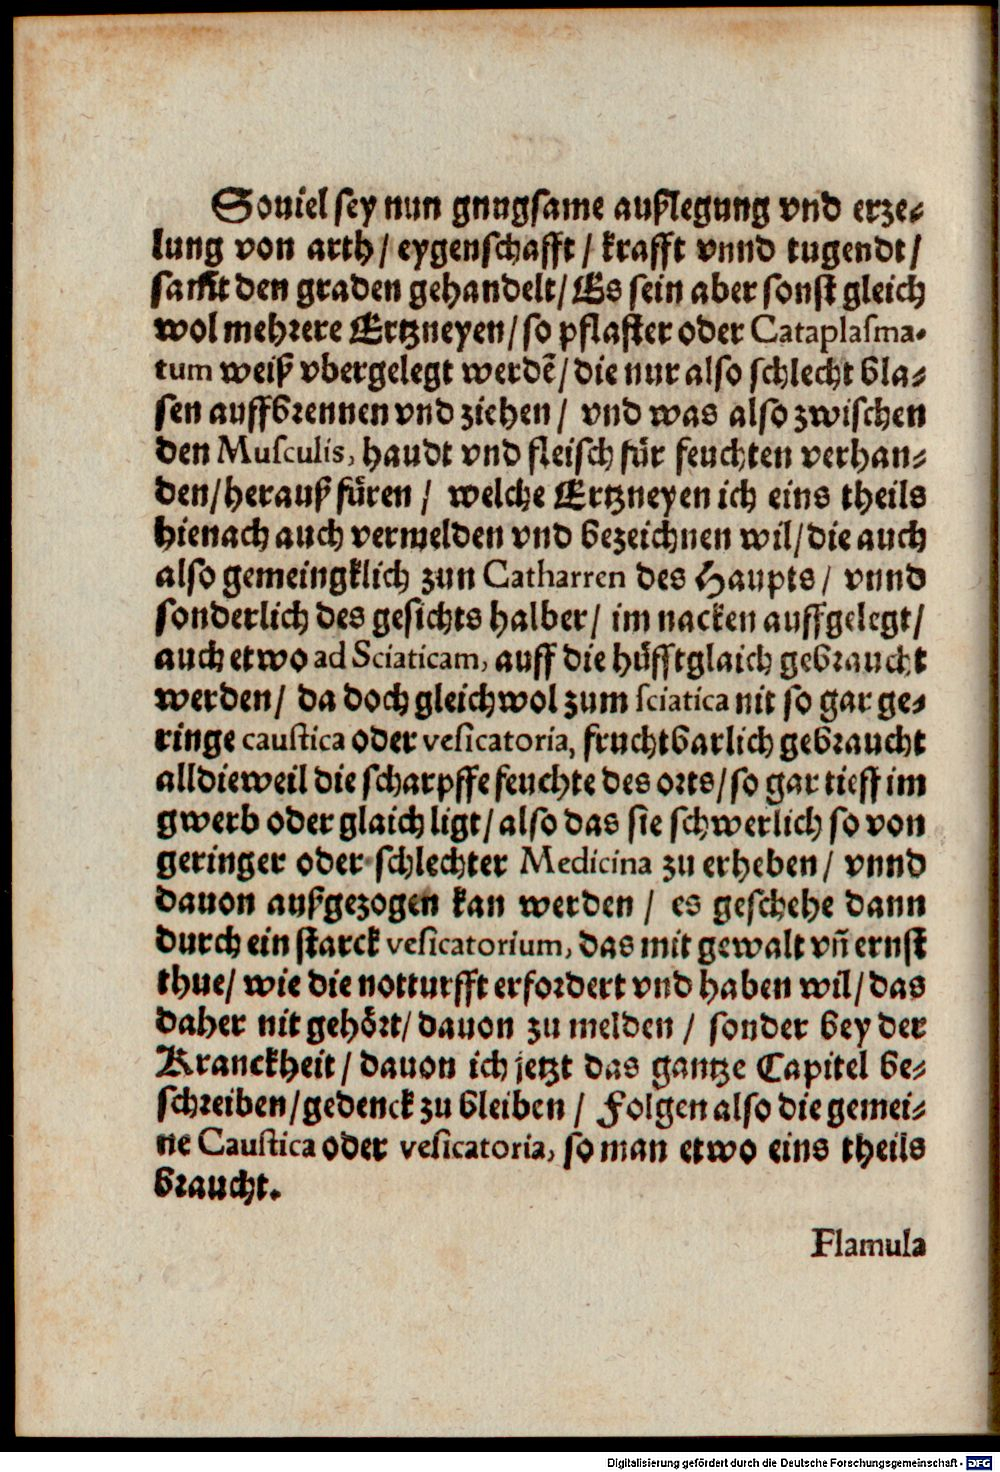 Souiel sey nun gnugsame außlegung vnd erze-
lung von arth / eygenschafft / krafft vnnd tugendt /
sampt den graden gehandelt / Es sein aber sonst gleich
wol mehrere Ertzneyen / so pflaster oder Cataplasma-
tum weiß vbergelegt werdē / die nur also schlecht bla-
sen auffbrennen vnd ziehen / vnd was also zwischen
den Musculis, haudt vnd fleisch für feuchten verhan-
den / herauß füren / welche Ertzneyen ich eins theils
hienach auch vermelden vnd bezeichnen wil / die auch
also gemeingklich zun Catharren des Haupts / vnnd
sonderlich des gesichts halber / im nacken auffgelegt /
auch etwo ad Sciaticam, auff die hüfftglaich gebraucht
werden / da doch gleichwol zum sciatica nit so gar ge-
ringe caustica oder vesicatoria, fruchtbarlich gebraucht
alldieweil die scharpffe feuchte des orts / so gar tieff im
gwerb oder glaich ligt / also das sie schwerlich so von
geringer oder schlechter Medicina zu erheben / vnnd
dauon außgezogen kan werden / es geschehe dann
durch ein starck vesicatorium, das mit gewalt vñ ernst
thue / wie die notturfft erfordert vnd haben wil / das
daher nit gehört / dauon zu melden / sonder bey der
Kranckheit / dauon ich jetzt das gantze Capitel be-
schreiben / gedenck zu bleiben / Folgen also die gemei-
ne Caustica oder vesicatoria, so man etwo eins theils
braucht.
Flamula
Digitalisierung gefördert durch die Deutsche Forschungsgemeinschaft - DFG